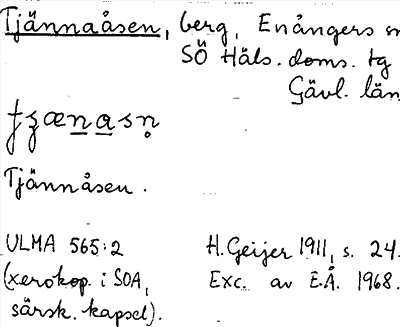 Tjännaåsen, berg, Enångers sn
SÖ Häls. doms. tg
Gävl. län
Tjännåsen.
ULMA 565:2 H. Geijer 1911, s. 24.
(xerokop. i SOA, Exc. av E.Å. 1968.
särsk. kapsel).